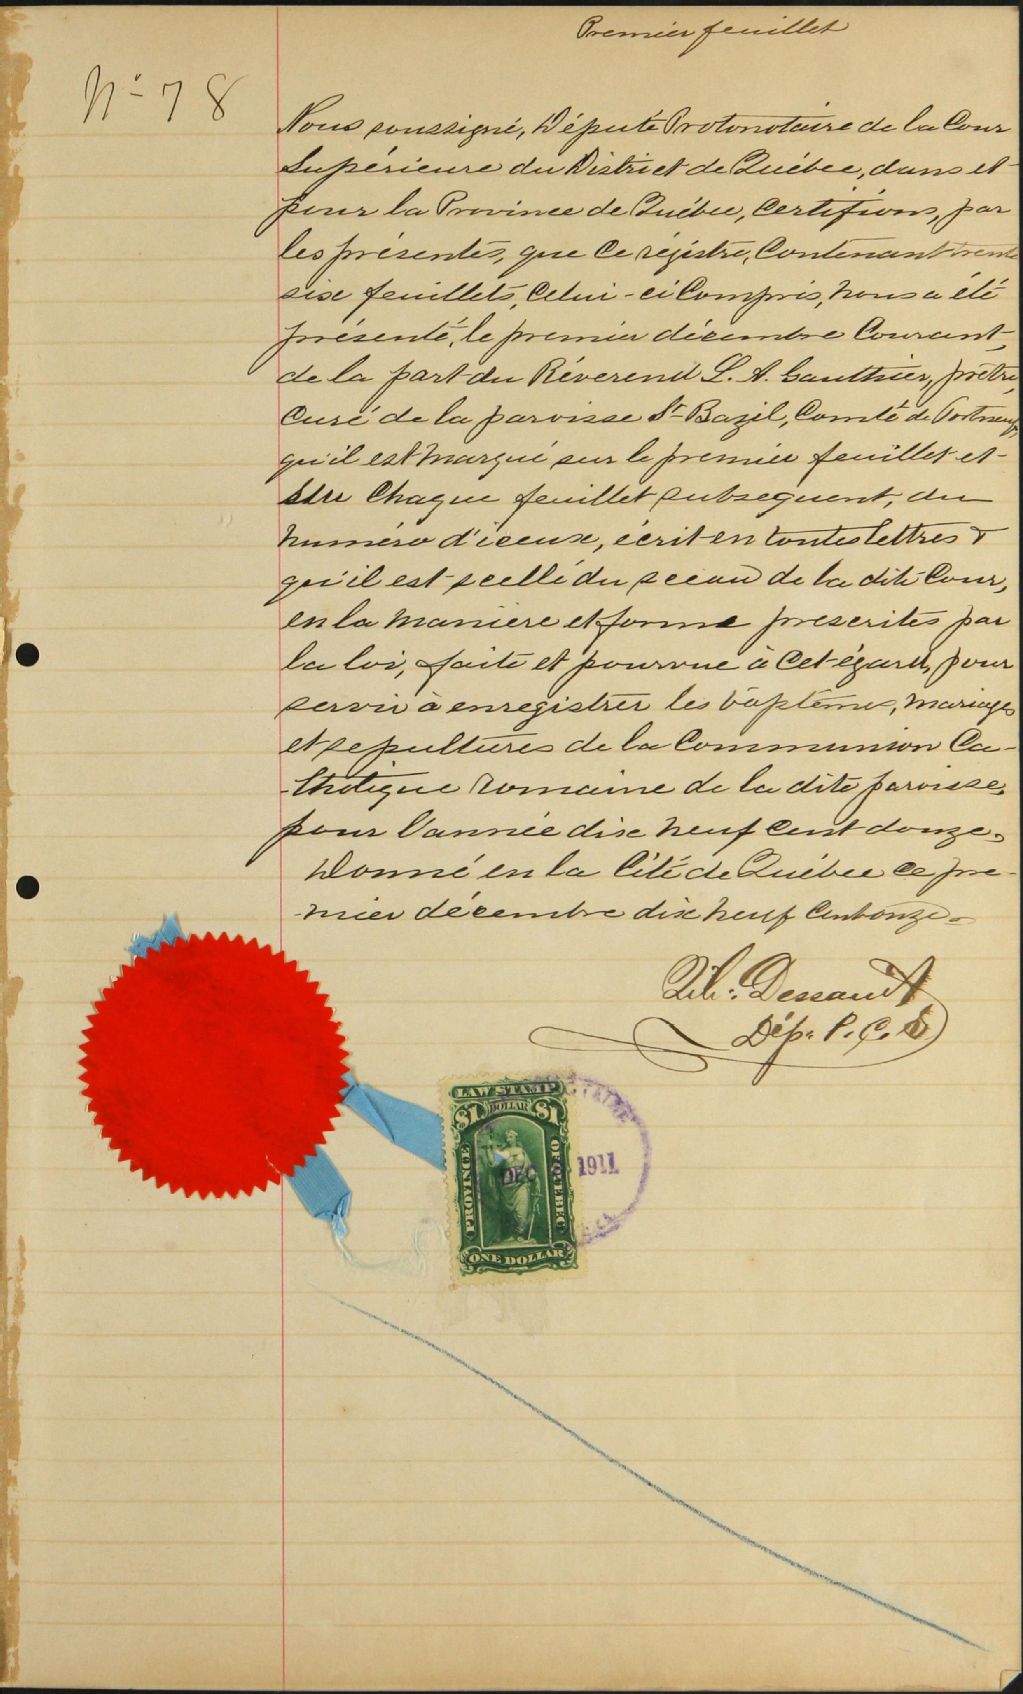 Premier feuillet
No 78
Nous soussigné, Député Protonotaire de la Cour
Supérieure du District de Québec, dans et
pour la Province de Québec, certifions, par
les présentes, que ce régistre, contenant trente
six feuillets, celui-ci compris, nous a été
présenté, le premier décembre courant,
de la part du Révérend L. A. Gauthier, prêtre,
curé de la paroisse St Bazil, Comté de Portneuf,
qu'il est marqué sur le premier feuillet et
sur chaque feuillet subsequent, du
numéro d'iceux, écrit en toutes lettres &
qu'il est scellé du sceau de la dite Cour,
en la manière et forme prescrites par
la loi, faite et pourvue à cet égard, pour
servir à enregistrer les baptêmes, mariages
et sepultures de la Communion Ca-
-tholique romaine de la dite paroisse,
pour l'année dix neuf cent douze.
Donné en la Cité de Québec ce pre-
-mier décembre dix neuf cent onze.
Dép. P. C. S.
LAW STAMP
$1 DOLLAR $1
PROVINCE OF QUEBEC
DEC 1911
ONE DOLLAR